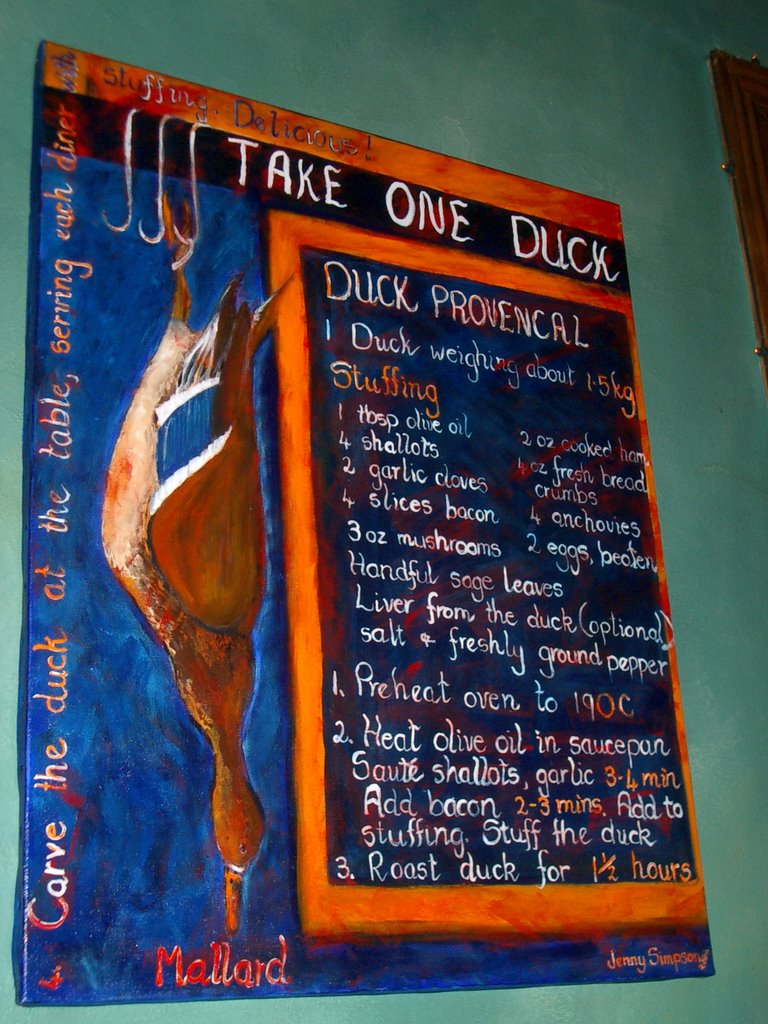 TAKE ONE DUCK
DUCK PROVENCAL
1 Duck weighing about 1.5kg
Stuffing
1 tbsp olive oil
4 shallots
2 garlic cloves
4 slices bacon
3 oz mushrooms
2 oz cooked ham
4 oz fresh bread
crumbs
4 anchovies
2 eggs, beaten
Handful sage leaves
Liver from the duck (optional)
salt & freshly ground pepper
1. Preheat oven to 190C
2. Heat olive oil in saucepan
Sauté shallots, garlic 3-4 min
Add bacon 2-3 mins. Add to
stuffing. Stuff the duck
3. Roast duck for 1½ hours
4. Carve the duck at the table, serving each diner with
stuffing. Delicious!
Mallard
Jenny Simpson